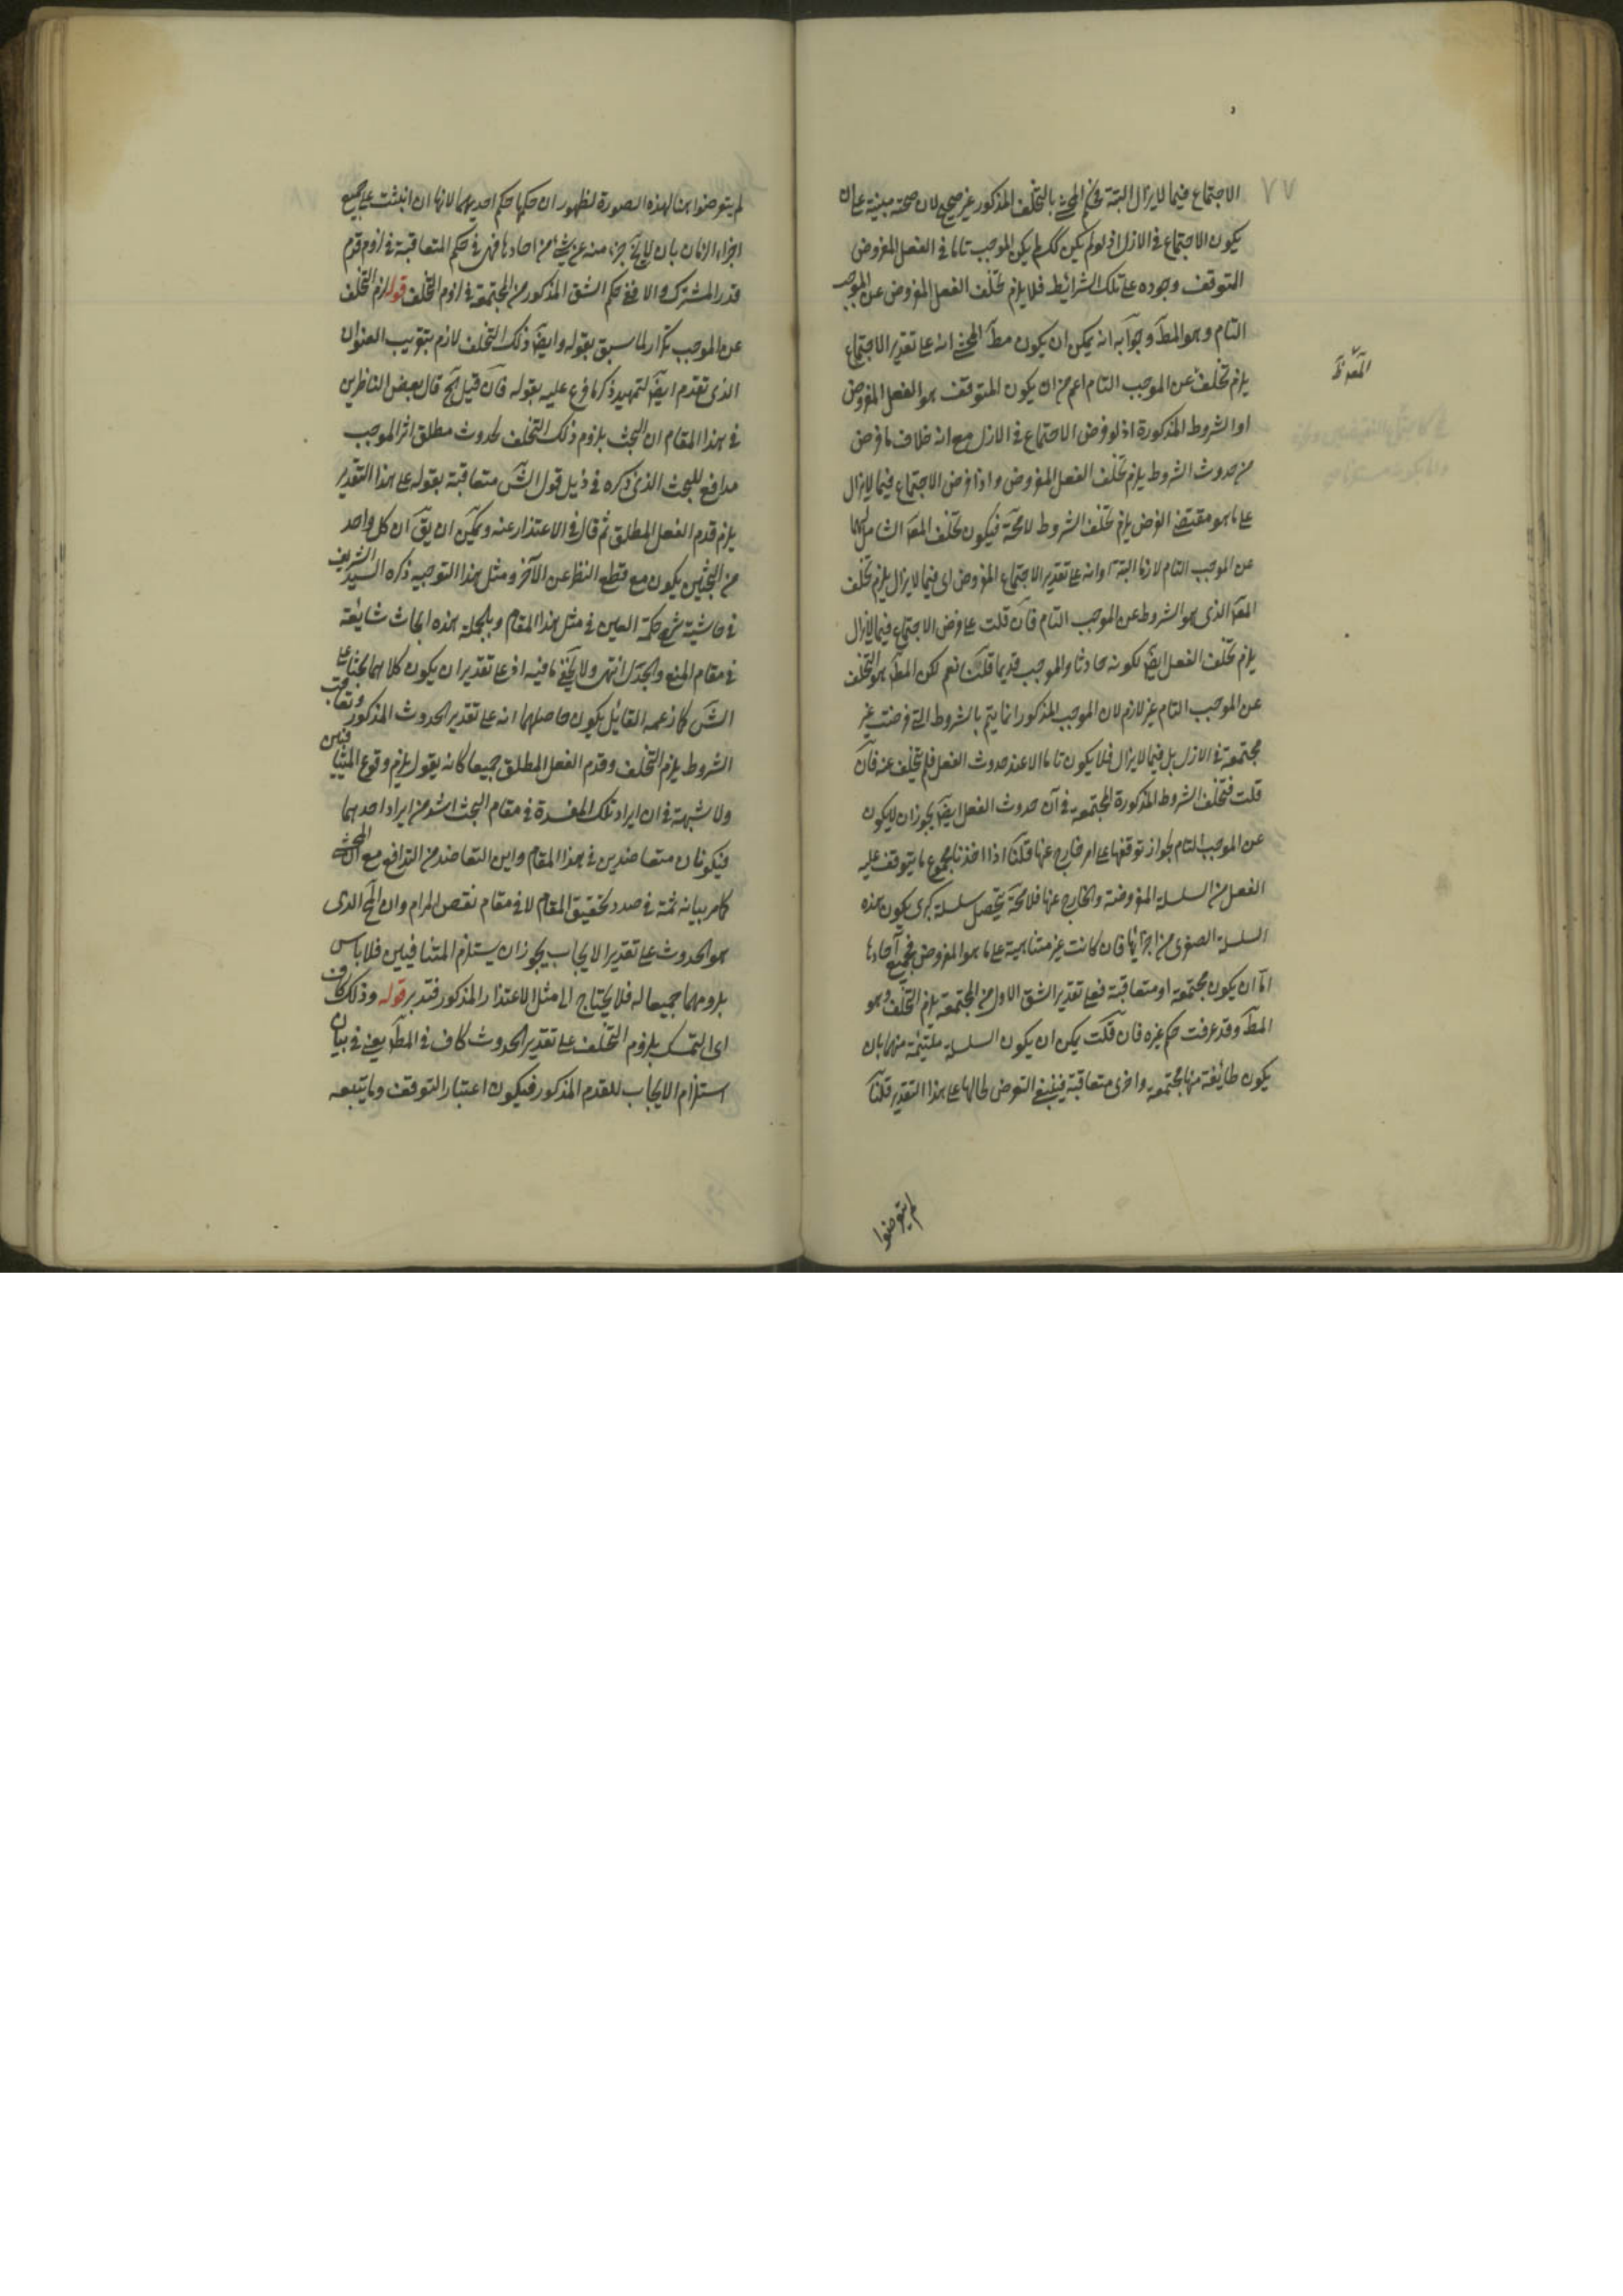 ٧٧
الاجتماع فيما لايزال البتة فحكم المحشى بالتخلف المذكور غير صحيح لان صحته مبنية على ان
يكون الاجتماع فى الازل اذ لو لم يكن كك لم يكن الموجب تاما فى الفعل المفروض
التوقف وجوده على تلك الشرائط فلا يلزم تخلف الفعل المفروض عن الموجب
التام وهو المط وجوابه انه يمكن ان يكون مط المحشى انه على تقدير الاجتماع
يلزم تخلف عن الموجب التام اعم من ان يكون المتوقف هو الفعل المفروض
او الشروط المذكورة اذ لو فرض الاجتماع فى الازل مع انه خلاف ما فرض
من حدوث الشروط يلزم تخلف الفعل المفروض واذا فرض الاجتماع فيما لايزال
على ما هو مقتضى الفرض يلزم تخلف الشروط لامحة فيكون تخلف الشامل لهما
عن الموجب التام لازما البتة او انه على تقدير الاجتماع المفروض اى فيما لايزال يلزم تخلف
الذى هو الشروط عن الموجب التام فان قلت على فرض الاجتماع فيما لايزال
يلزم تخلف الفعل ايض لكونه حادثا والموجب قديما قلت نعم لكن المط هو التخلف
عن الموجب التام غير لازم لان الموجب المذكور انما يتم بالشروط التى فرضت غير
مجتمعة فى الازل بل فيما لايزال فلا يكون تاما الا عند حدوث الفعل فلم يتخلف عنه فان
قلت فتخلف الشروط المذكورة المجتمعة فى آن حدوث الفعل ايض يجوز ان لايكون
عن الموجب التام لجواز توقفها على امر خارج عنها قلنا اذا اخذنا مجموع ما يتوقف عليه
الفعل من السلسلة المفروضة والخارج عنها فلامحة يتحصل سلسلة كبرى يكون هذه
السلسلة الصغرى من اجزائها فان كانت غير متناهية على ما هو المفروض فجميع آحادها
اما ان يكون مجتمعة او متعاقبة فعلى تقدير الشق الاول من المجتمعة يلزم التخلف وهو
المط وقد عرفت حكم غيره فان قلت يمكن ان يكون السلسلة ملتئمة منهما بان
يكون طائفة منها مجتمعة واخرى متعاقبة فينبغى التعرض لحالها على هذا التقدير قلنا
لم يتعرضوا
لم يتعرضوا هنا لهذه الصورة لظهور ان حكمها حكم احديهما لانها ان انبثت على جميع
اجزاء الزمان بان لايخ جزء منه عن شئ من احادها فهى فى حكم المتعاقبة فى لزوم قدم
قدر المشترك والا ففى حكم الشق المذكور من المجتمعة فى لزوم التخلف قوله لزم التخلف
عن الموجب تكرار لما سبق بقوله وايض ذلك التخلف لازم بتقريب العنوان
الذى تقدم ايض لتمهيد ذكر ما فرع عليه بقوله فان قيل الخ قال بعض الناظرين
فى هذا المقام ان البحث بلزوم ذلك التخلف لحدوث مطلق اثر الموجب
مدافع للبحث الذى ذكره فى ذيل قول الش متعاقبة بقوله على هذا التقدير
يلزم قدم الفعل المطلق ثم قال فى الاعتذار عنه ويمكن ان يق ان كل واحد
من البحثين يكون مع قطع النظر عن الآخر ومثل هذا التوجيه ذكره السيد الشريف
فى حاشية شرح حكمة العين فى مثل هذا المقام وبالجملة هذه ابحاث شايعة
فى مقام المنع والجدل انتهى ولا يخفى ما فيه اذ على تقدير ان يكون كلاهما بحثا على
الش كما زعمه القائل يكون حاصلهما انه على تقدير الحدوث المذكور وتعاقب
الشروط يلزم التخلف وقدم الفعل المطلق جميعا كانه يقول يلزم وقوع المتنافيين
ولا شبهة فى ان ايراد تلك المفسدة فى مقام البحث اشد من ايراد احدهما
فيكونان متعاضدين فى هذا المقام واين التعاضد من التدافع مع ان المحشى
كما مر بيانه ثمة فى صدد تحقيق المقام لا فى مقام نقص المرام وان المح الذى
هو الحدوث على تقدير الايجاب يجوز ان يستلزم المتنافيين فلا باس
بلزومهما جميعا له فلا يحتاج الى مثل الاعتذار المذكور فتدبر قوله وذلك كاف
اى التمسك بلزوم التخلف على تقدير الحدوث كاف فى المط يعنى فى بيان
استلزام الايجاب للقدم المذكور فيكون اعتبار التوقف وما يتبعه